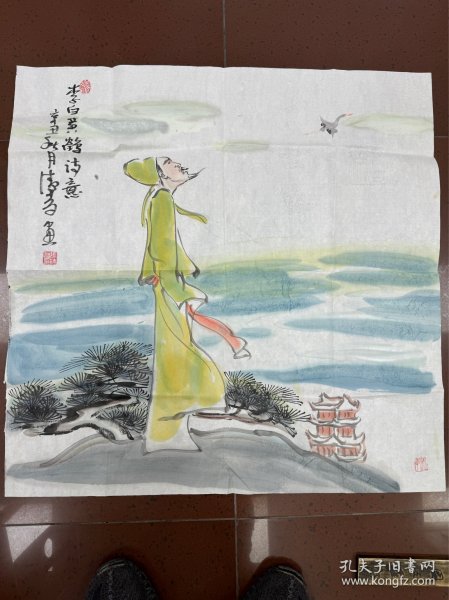 李白黄鹤诗意
辛丑秋月清
画
孔夫子旧书网
www.kongfz.com